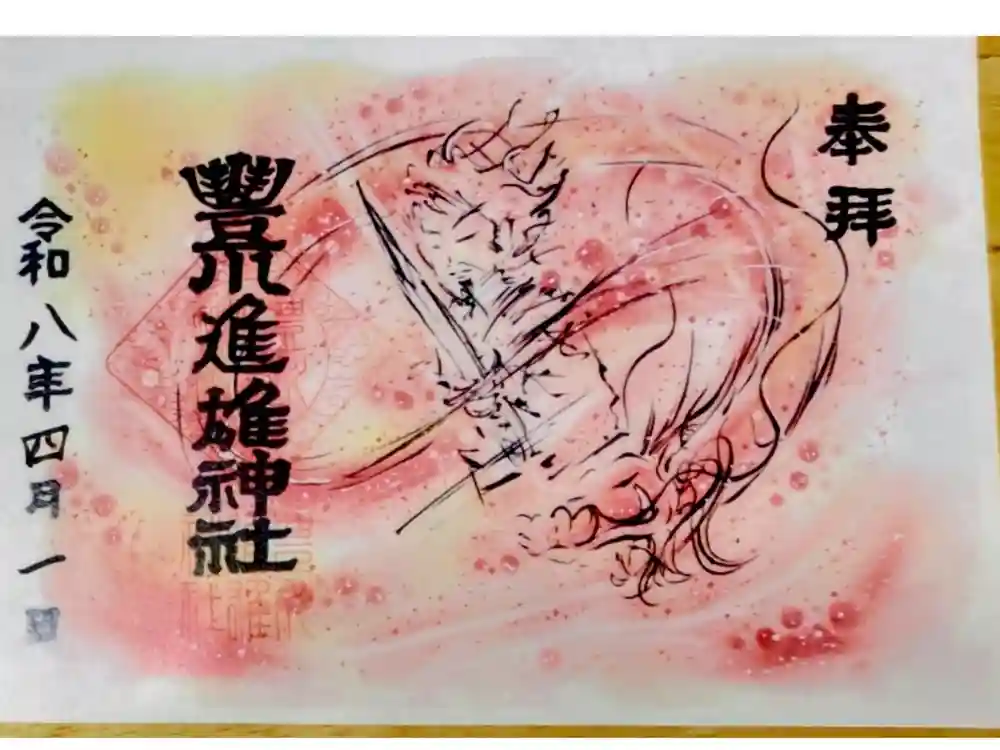 奉拝
豐川進雄神社
令和八年四月一日